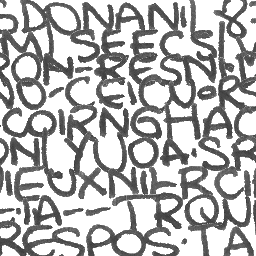 SDONANI 8
MI SEECSI
ON-RESN
NO-CEICU·RS
COIRNGHAC
ONLYUOA·SR
IEUXNILRCI
-TA--TRQN
RESPOS·TA